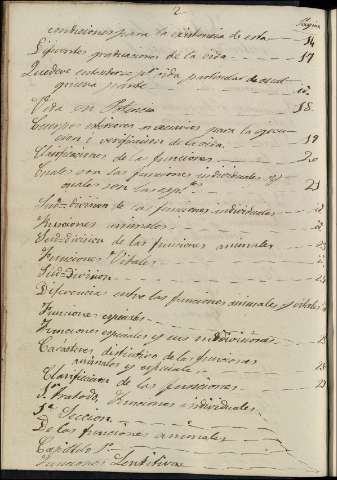 2
Pagina
condiciones para la existencia de esta 14
Diferentes graduaciones de la vida 17
Que deve entenderse pr. vida particular de cual
quiera parte id.
Vida en Potencia 18
Cuerpos esteriores necesarios para la ejecu
cion i verificacion de la vida 19
Clasificaciones de las funciones 20
Cuales son las funciones individuales y
quales son las esp.les 21
Sub=division de las funciones individuales id
Funciones animales id
Sub=division de las funciones animales
Funciones Vitales
Sub=division
Diferencia entre las funciones animales y vitales
Funciones especiales
Funciones especiales y sus indiviciones
Caracteres distintivo de las funciones
animales y especiales
Clasificacion de las funciones
1er. Tratado, Funciones individuales
1a. Seccion
De las funciones animales
Capitulo 1o.
Funciones Sensitivas